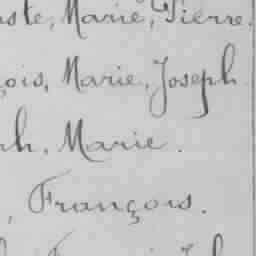 ste, Marie, Pierre.
çois, Marie, Joseph
ph, Marie.
, François.